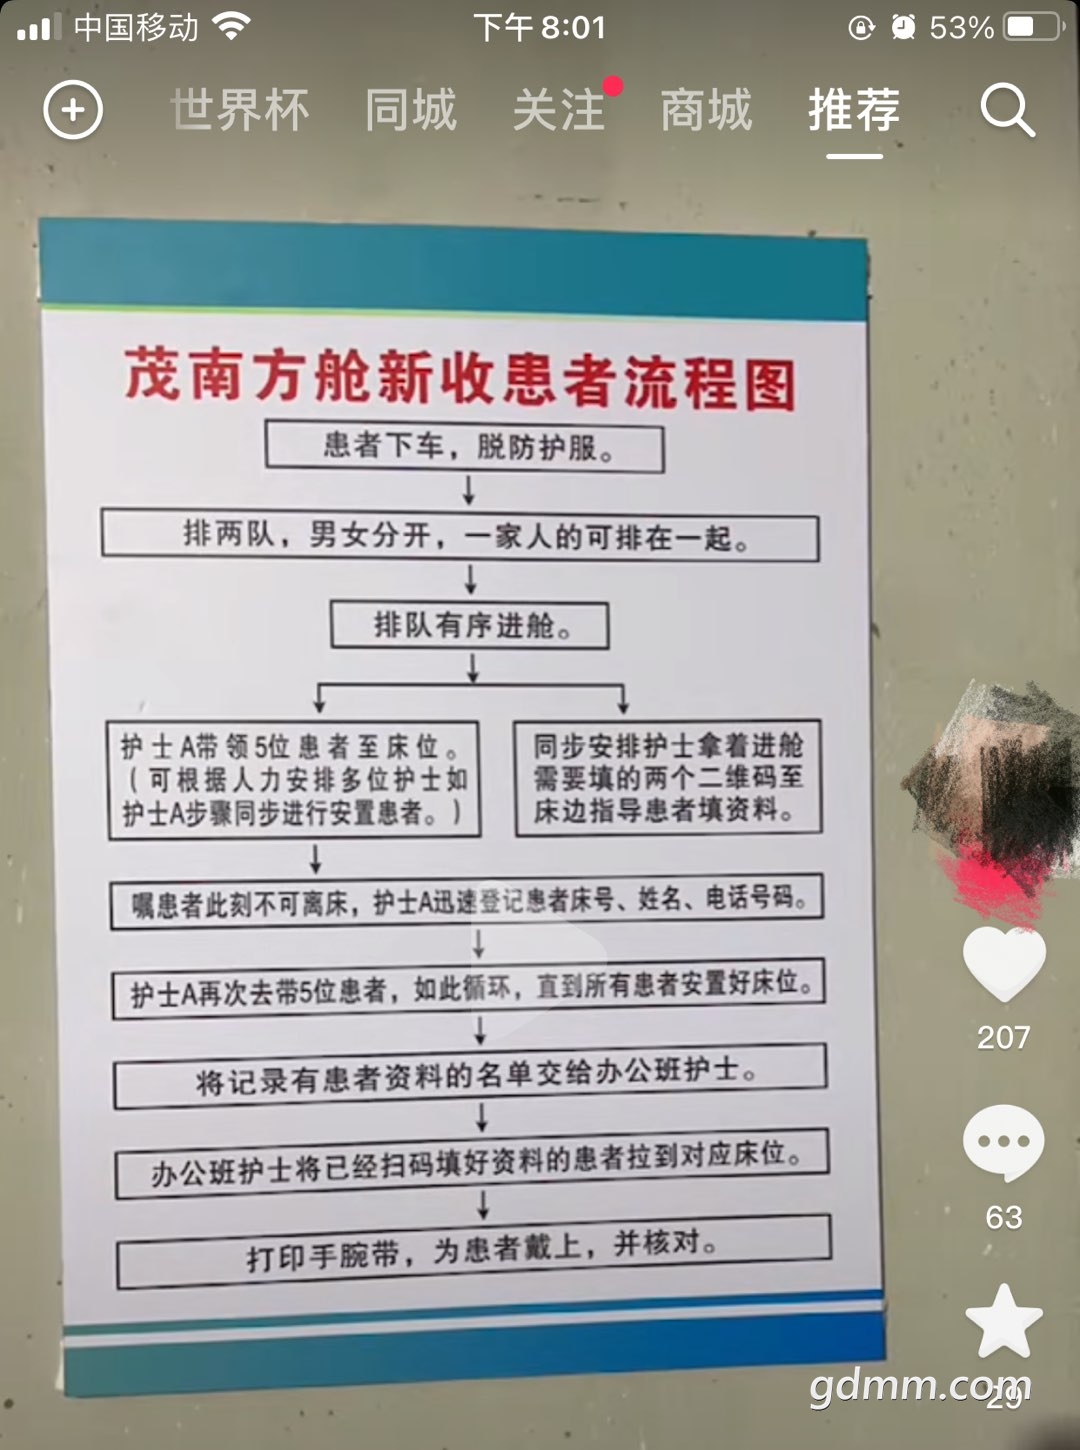 中国移动
下午8:01
53%
世界杯
同城
关注
商城
推荐
茂南方舱新收患者流程图
患者下车，脱防护服。
排两队，男女分开，一家人的可排在一起。
排队有序进舱。
护士A带领5位患者至床位。
（可根据人力安排多位护士如
护士A步骤同步进行安置患者。）
同步安排护士拿着进舱
需要填的两个二维码至
床边指导患者填资料。
嘱患者此刻不可离床，护士A迅速登记患者床号、姓名、电话号码。
护士A再次去带5位患者，如此循环，直到所有患者安置好床位。
将记录有患者资料的名单交给办公班护士。
办公班护士将已经扫码填好资料的患者拉到对应床位。
打印手腕带，为患者戴上，并核对。
207
63
29
gdmm.com